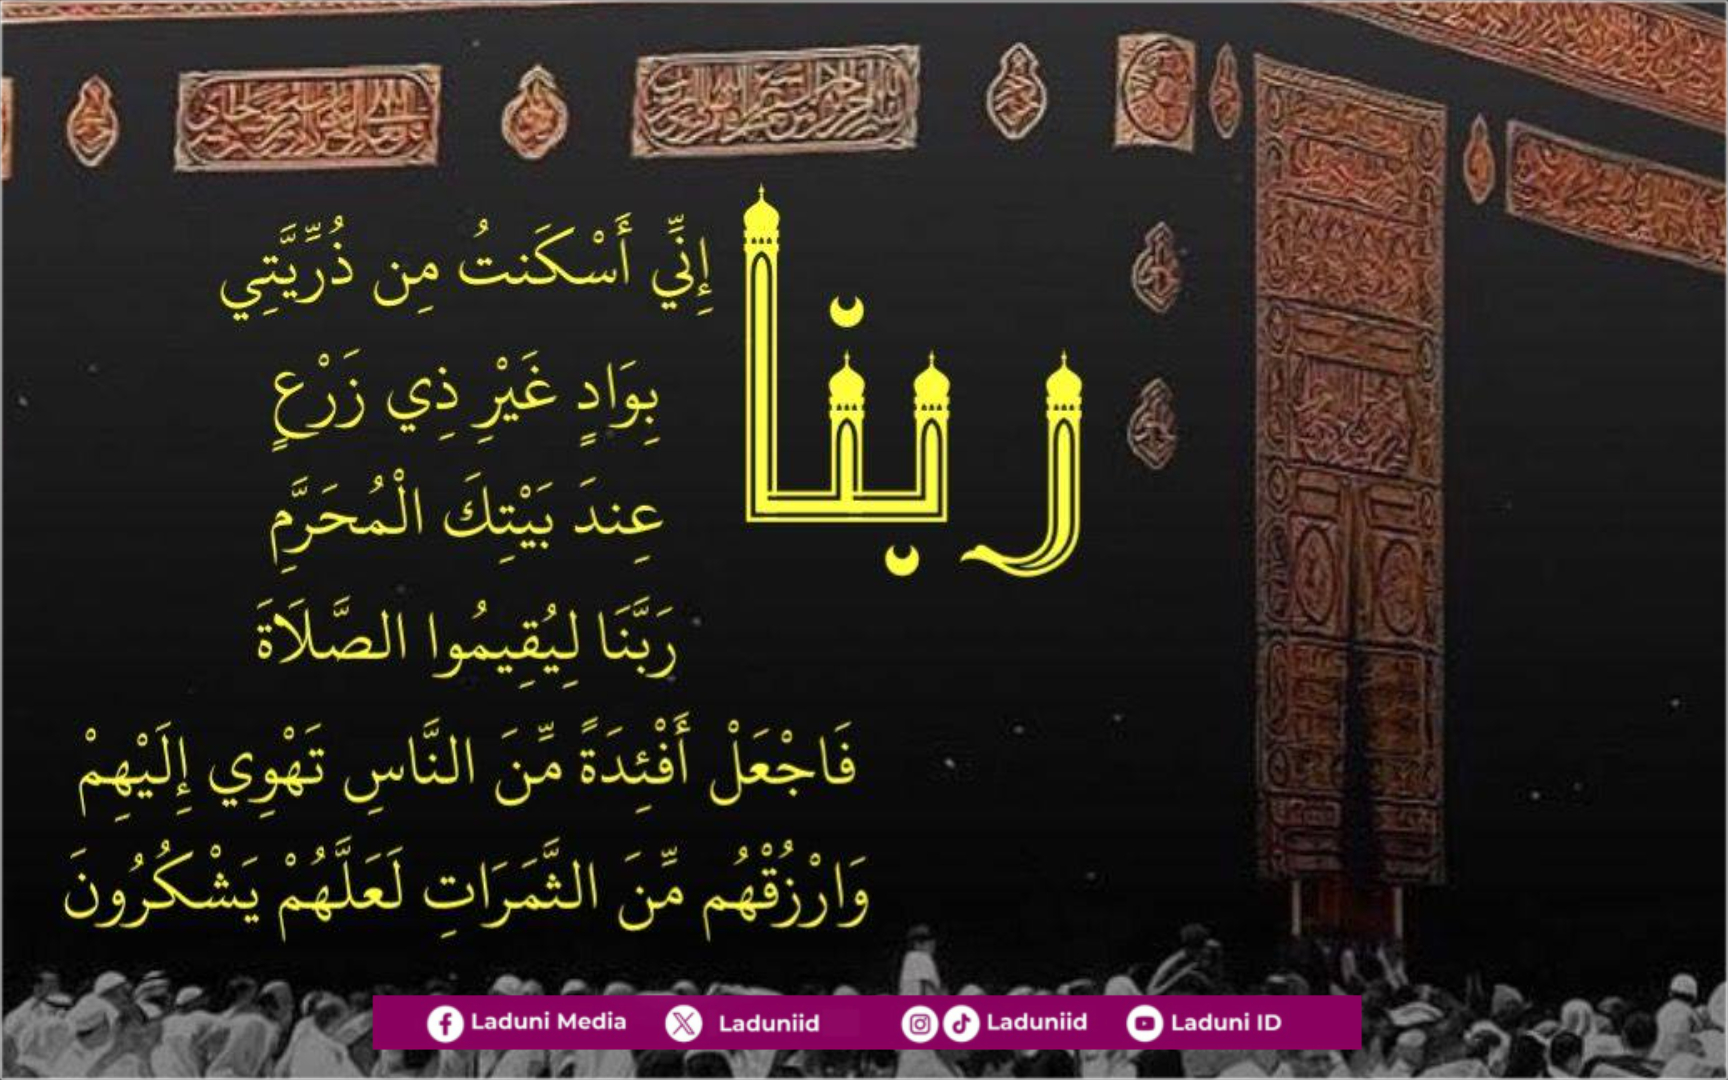 ربنا
إِنِّي أَسْكَنتُ مِن ذُرِّيَّتِي
بِوَادٍ غَيْرِ ذِي زَرْعٍ
عِندَ بَيْتِكَ الْمُحَرَّمِ
رَبَّنَا لِيُقِيمُوا الصَّلَاةَ
فَاجْعَلْ أَفْئِدَةً مِّنَ النَّاسِ تَهْوِي إِلَيْهِمْ
وَارْزُقْهُم مِّنَ الثَّمَرَاتِ لَعَلَّهُمْ يَشْكُرُونَ
Laduni Media Laduniid Laduniid Laduni ID